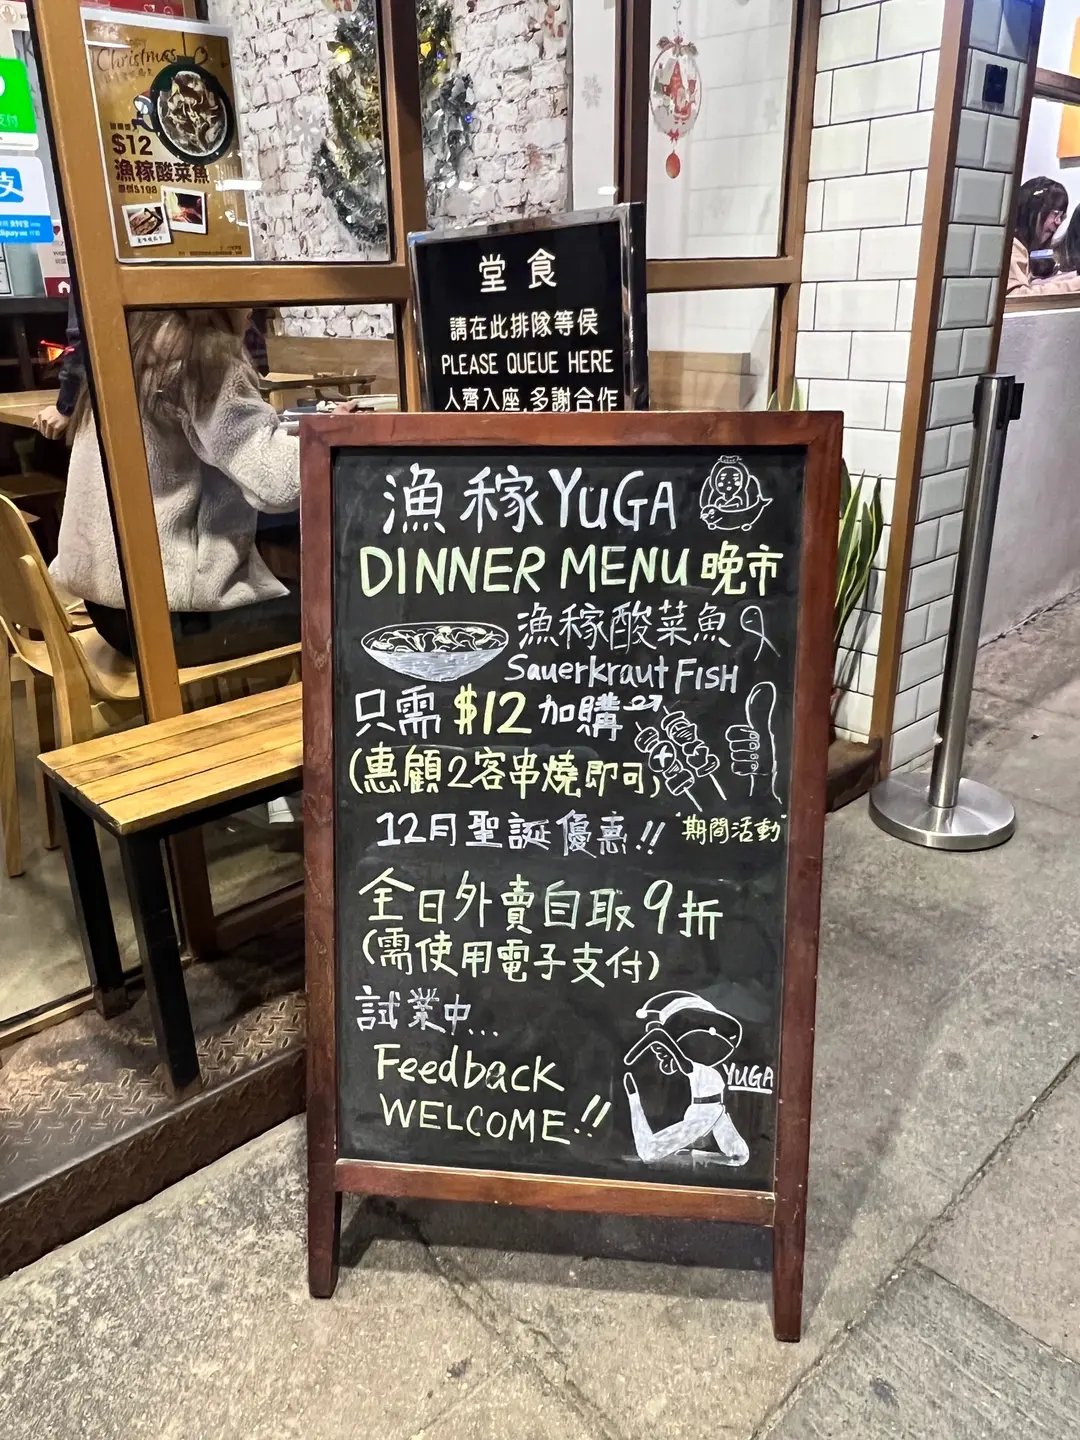 Christmas
$12
漁稼酸菜魚
原價$198
支付
支
堂食
請在此排隊等侯
PLEASE QUEUE HERE
人齊入座,多謝合作
漁稼YUGA
DINNER MENU 晚市
漁稼酸菜魚
Sauerkraut FISH
只需 $12 加購
(惠顧2客串燒即可)
12月聖誕優惠!! "期間活動"
全日外賣自取9折
(需使用電子支付)
試業中...
Feedback
WELCOME!!
YUGA